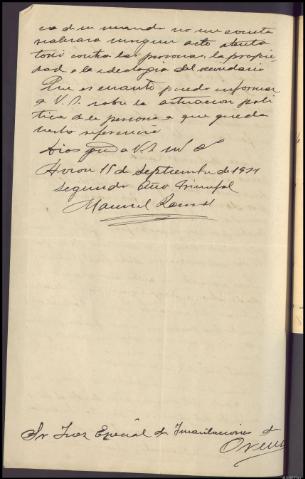 no me consta
realizara ningun acto atenta
torio contra las personas, la propie
dad o la ideologia del
Que es cuanto puedo informar
a V.S. sobre la actuacion poli
tica de la persona a que queda
hecho referencia
Dios a V.S. m. a.
Avion 15 de Septiembre de 1937
Segundo Año Triunfal
Manuel
Sr Juez Especial de Incautaciones de
Orense